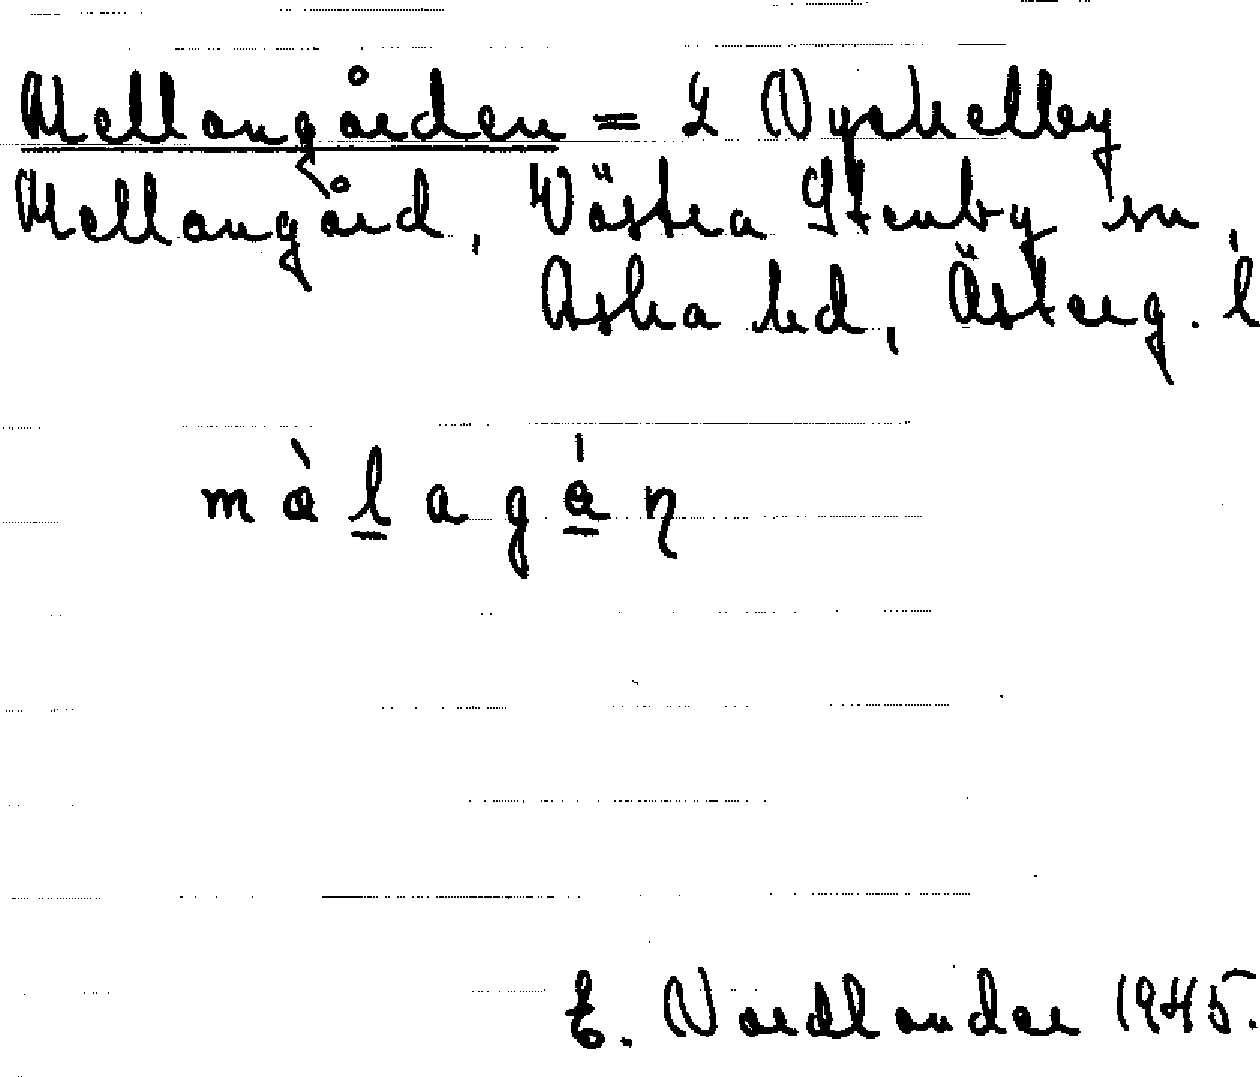 Mellangården = 2 Nyckelby
Mellangård, Västra Stenby sn,
Aska hd, Österg. l
màlagȧ́n
E. Nordlander 1945.